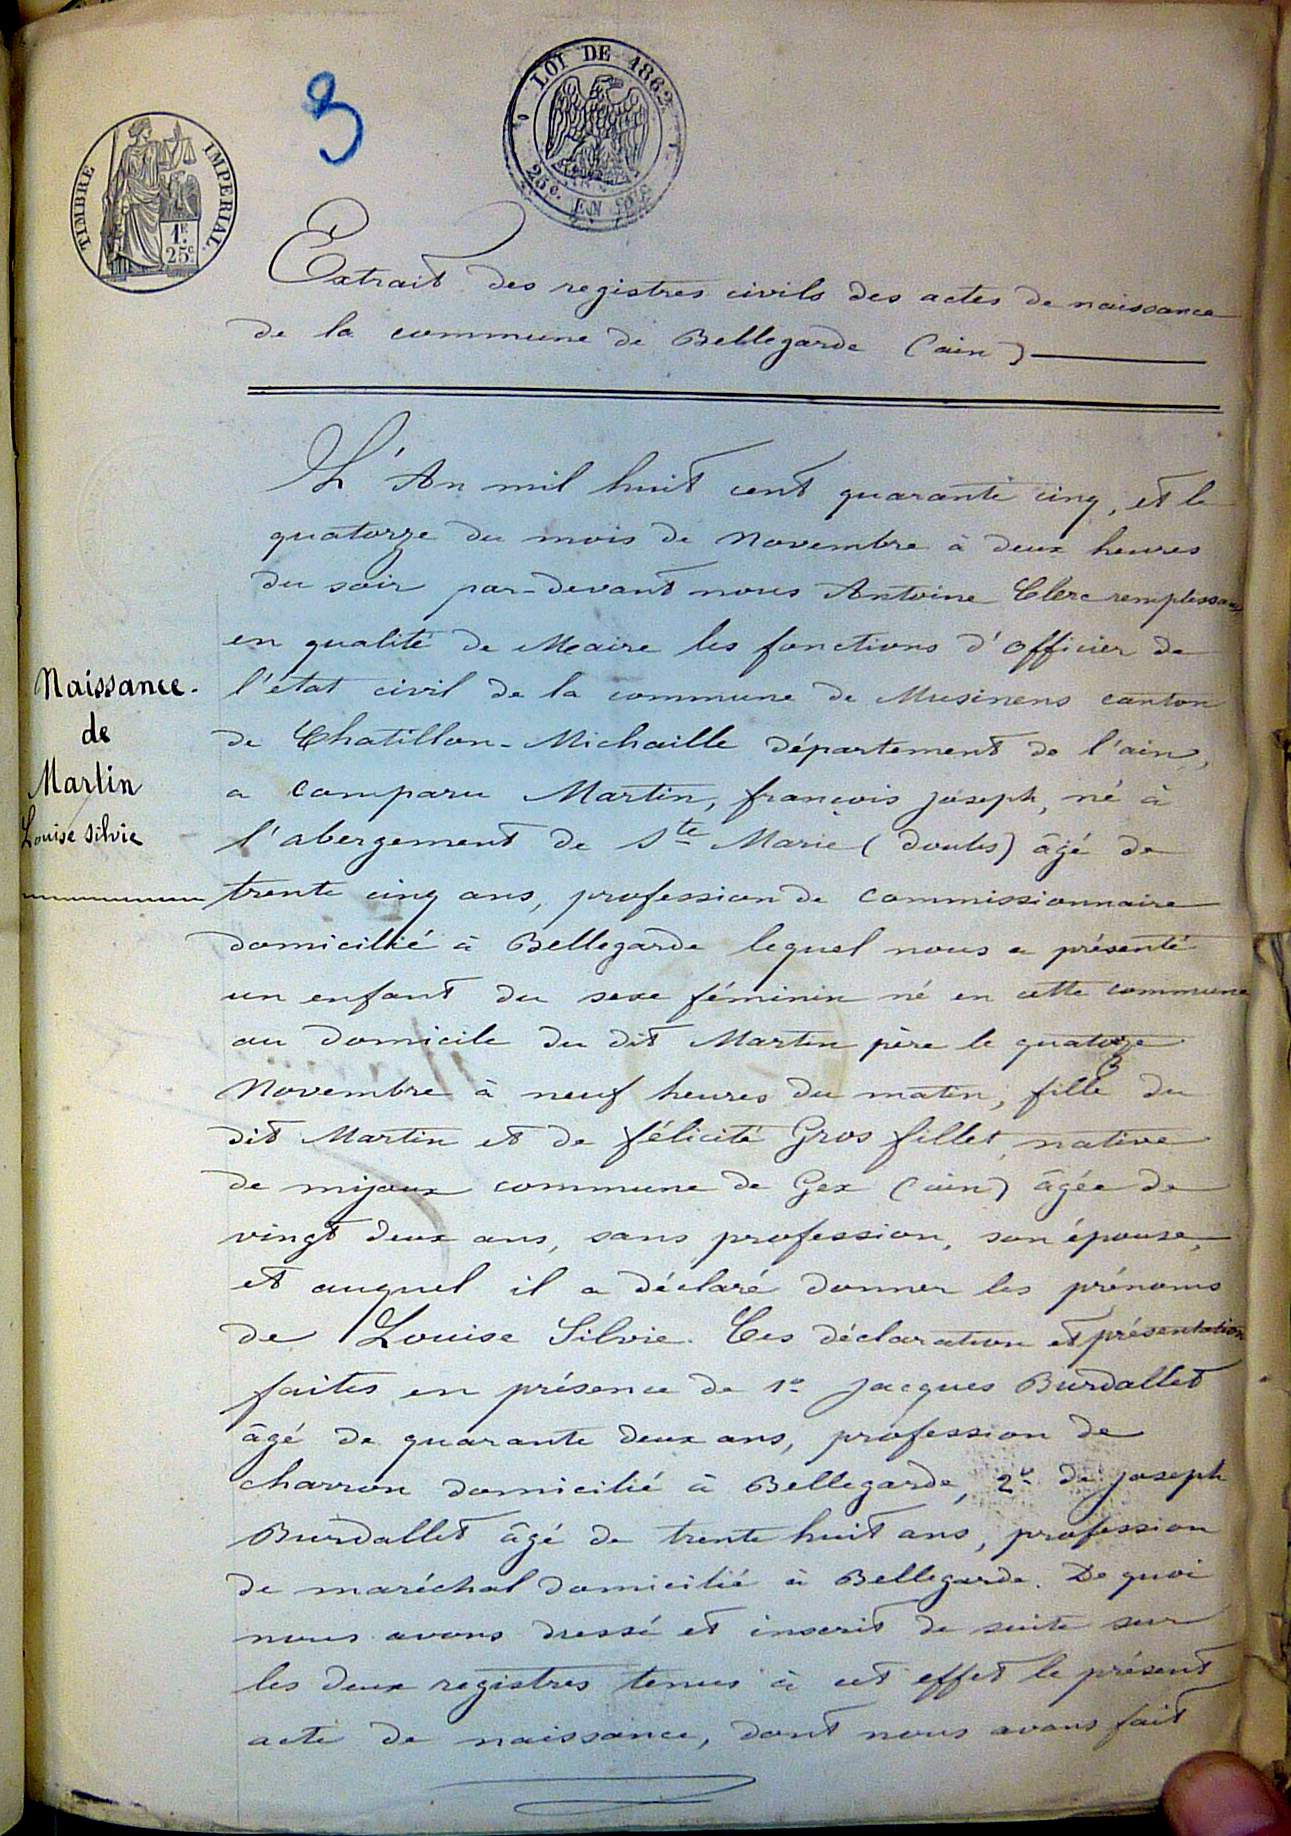 3
LOI DE 1862
25c. EN SUS
TIMBRE IMPERIAL.
1F
25c
Extrait des registres civils des actes de naissance
de la commune de Bellegarde (ain)
L'An mil huit cent quarante cinq, et le
quatorze du mois de Novembre à deux heures
du soir par-devant nous Antoine Clerc remplissant
en qualité de Maire les fonctions d'officier de
l'état civil de la commune de Musinens canton
de Chatillon-Michaille département de l'ain,
a comparu Martin, françois joseph, né à
l'abergement de Ste Marie (doubs) âgé de
trente cinq ans, profession de commissionnaire
domicilié à Bellegarde lequel nous a présenté
un enfant du sexe féminin né en cette commune
au domicile du dit Martin père le quatorze
Novembre à neuf heures du matin, fille du
dit Martin et de félicité Gros fillet, native
de mijoux commune de Gex (ain) âgée de
vingt deux ans, sans profession, son épouse,
et auquel il a déclaré donner les prénoms
de Louise Silvie. Ces déclaration et présentation
faites en présence de 1o jacques Burdallet
âgé de quarante deux ans, profession de
charron domicilié à Bellegarde, 2o de joseph
Burdallet âgé de trente huit ans, profession
de maréchal domicilié à Bellegarde. De quoi
nous avons dressé et inscrit de suite sur
les deux registres tenus à cet effet le présent
acte de naissance, dont nous avons fait
Naissance.
de
Martin
Louise silvie